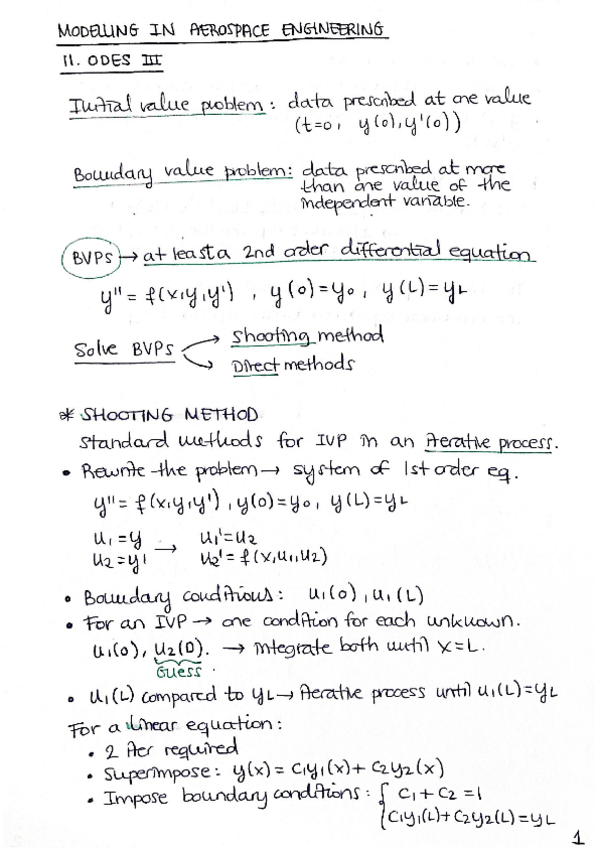 MODELLING IN AEROSPACE ENGINEERING
11. ODES III
Initial value problem: data prescribed at one value
(t=0, y(0), y'(0))
Boundary value problem: data prescribed at more
than one value of the
independent variable.
BVPs → at least a 2nd order differential equation
y'' = f(x,y,y') , y(0)=y0, y(L)=yL
Solve BVPs → Shooting method
→ Direct methods
* SHOOTING METHOD
Standard methods for IVP in an iterative process.
• Rewrite the problem → system of 1st order eq.
y'' = f(x,y,y'), y(0)=y0, y(L)=yL
u1=y → u1'=u2
u2=y' u2'=f(x,u1,u2)
• Boundary conditions: u1(0), u1(L)
• For an IVP → one condition for each unknown.
u1(0), u2(0). → integrate both until x=L.
Guess.
• u1(L) compared to yL → iterative process until u1(L)=yL
For a linear equation:
• 2 iter required
• Superimpose: y(x) = C1y1(x) + C2y2(x)
• Impose boundary conditions: { C1 + C2 = 1
C1y1(L) + C2y2(L) = yL
1